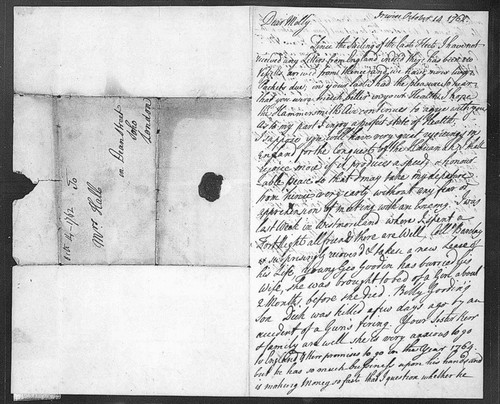 Irwin October 14. 1762
Dear Molly
Since the Sailing of the last Fleet I have not
received any Letters from England indeed there has been no
Vessells arrived from thence and we have now two
Packets due, in your last I had the pleasure to hear
that you were much better in your Health I hope
the Hammersmith Air continues to agree with you
As to my part I enjoy a perfect state of Health.
I suppose you will have very great rejoicings in
England for the Conquest of the Havanah, I shall
rejoice more if it produces a speedy & Honour-
able peace so that I may take my departure
from hence very early without any fear or
apprehension of meeting with an Enemy. I was
last Week in Westmoreland where I spent a
Fortnight all friends there are Well. Coll Barclay
is surprisingly recovered & taken a new Lease of
his Life Young Geo Goodin has burried his
Wife, she was brought to bed of a Son about
2 Months before she died. Billy Gordin's
Son Dick was killed a few days ago by an
accident of a Gun's firing. Your Sister Kerr
& family are well she is very anxious to go
to England & Kerr promises to go in the Year 1764.
but he has so much business upon his hands and
is making Money so fast that I question whether he
To
Mrs. Hall
in Dean Street
Soho
London